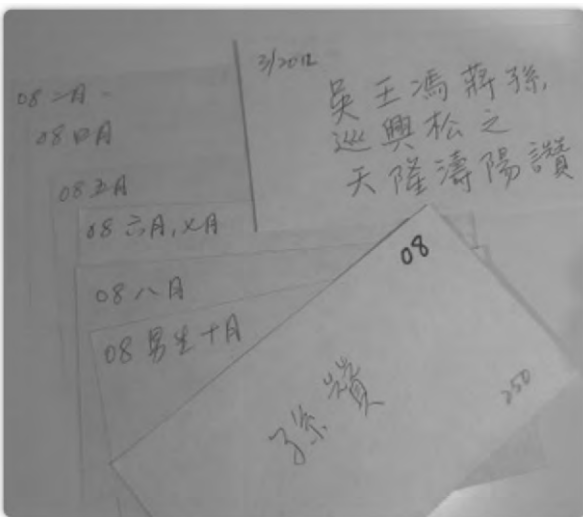 08 二月
08 四月
08 五月
08 六月,七月
08 八月
08 男生十月
3/2012
吳王馮蔣孫,
巡興松之
天隆濤陽讚
08
孫贊
250